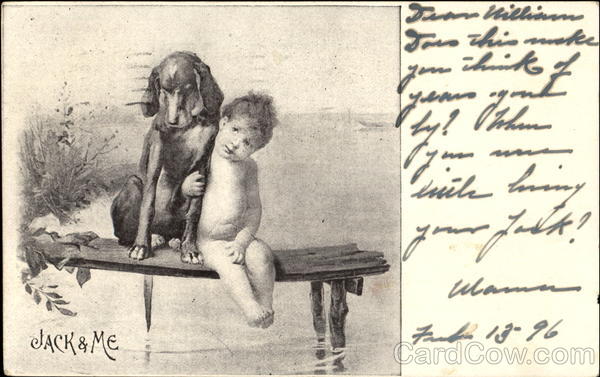 Dear William
Does this make
you think of
years gone
by? When
you were
little loving
your Jack!
Mamma
Feb 13-96
JACK & ME
CardCow.com